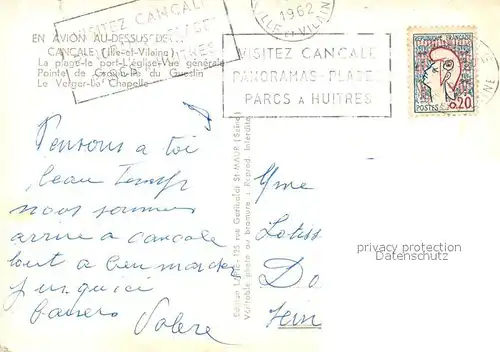 EN AVION AU-DESSUS DE...
CANCALE (Ille-et-Vilaine)
La plage-le port-L'église-Vue générale
Pointe de Grouin-Ile du Guesclin
Le Verger-La Chapelle
VISITEZ CANCALE
PLAGES
HUITRES
1962
ILLE ET VILAINE
VISITEZ CANCALE
PANORAMAS-PLAGES
PARCS A HUITRES
REPUBLIQUE FRANCAISE
POSTES 0,20
Pensons a toi
beau temps
nous sommes
arrive a cancale
tout a bien marche
jusquici
baisers Valere
135 rue Garibaldi St-MAUR (Seine)
Véritable photo au bromure - Reprod. Interdite
Mme
Do
privacy protection
Datenschutz